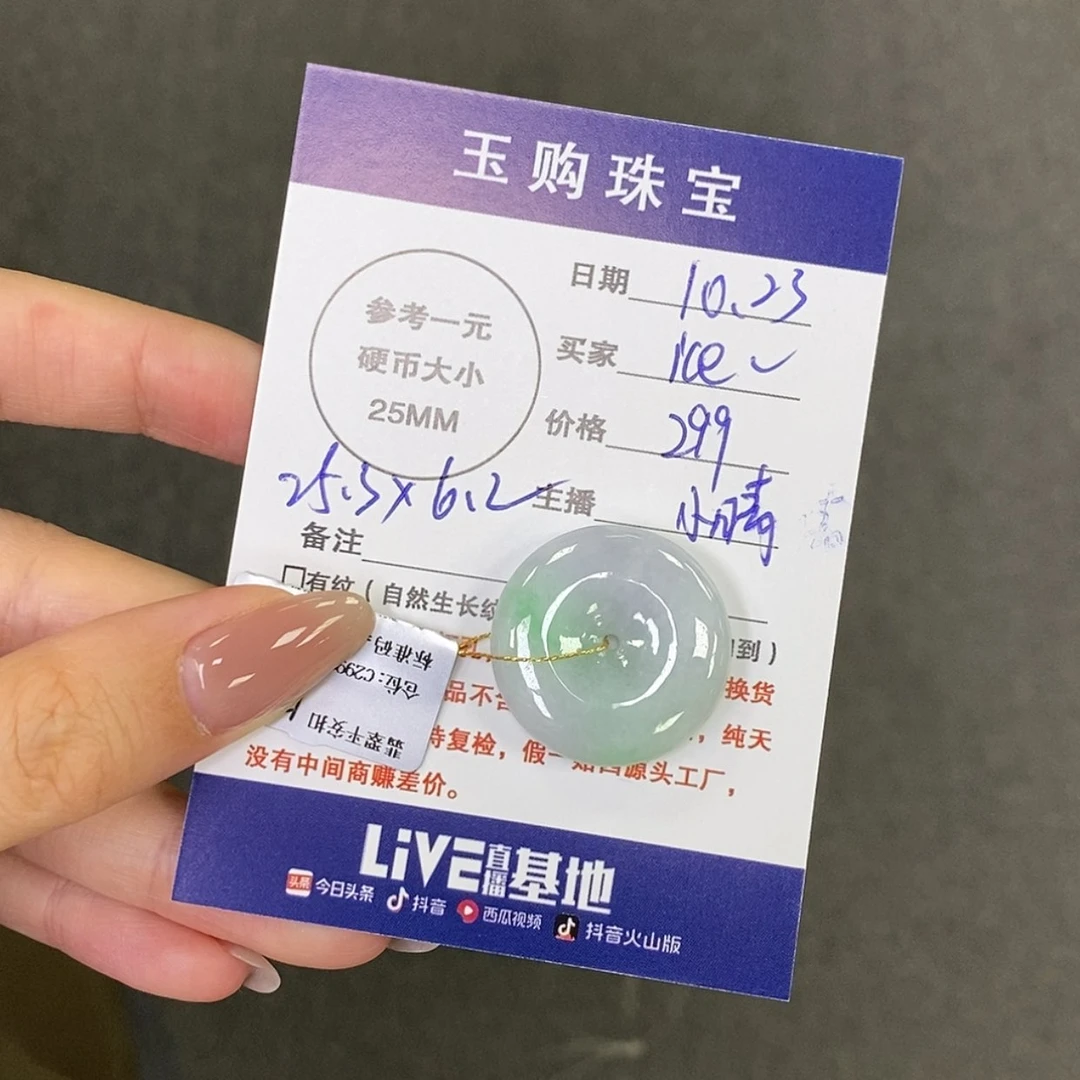 玉购珠宝
参考一元
硬币大小
25MM
日期 10.23
买家 ice
价格 299
25.3×6.2 主播 小晴
备注
有纹(自然生长纹
到)
标准码
仓位:C299
翡翠平安扣
品不 换货
复检,假一 ,纯天
源头工厂,
没有中间商赚差价。
LiVE直播基地
头条 今日头条 抖音 西瓜视频 抖音火山版